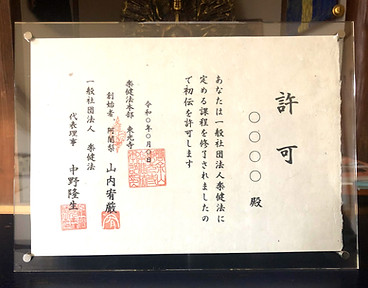 許可
〇〇〇〇 殿
あなたは一般社団法人楽健法に
定める課程を修了されましたの
で初伝を許可します
令和〇年〇月〇日
楽健法本部 東光寺
創始者 阿闍梨 山内宥厳
一般社団法人 楽健法
代表理事 中野隆生